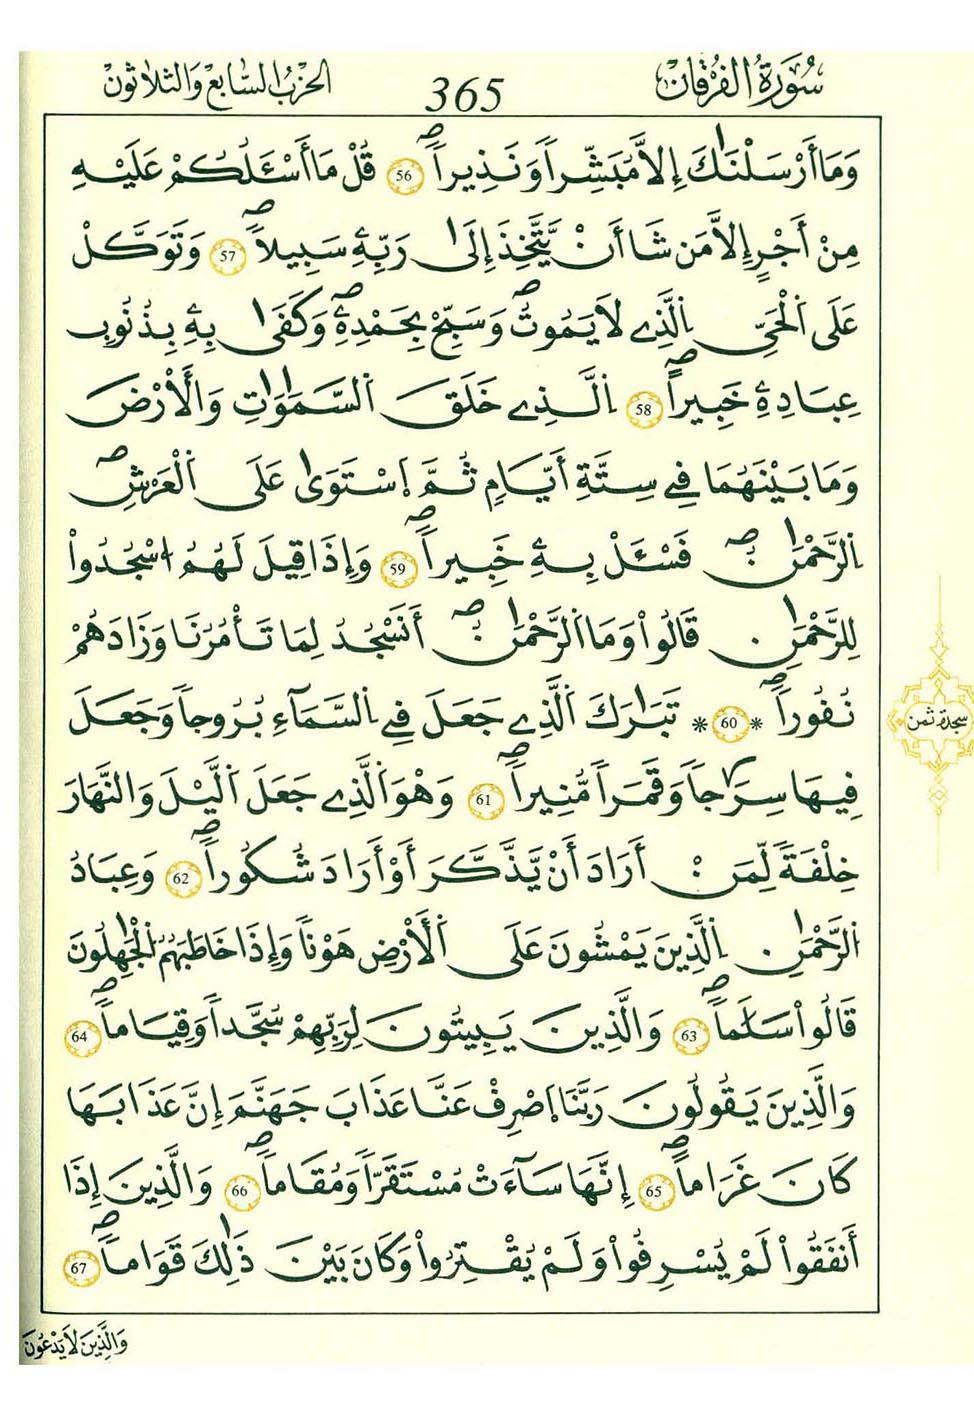 سُورَةُ الفُرْقَانِ 365 الحزبُ السَّابع وَالثلاثون
وَمَا أَرْسَلْنَٰكَ إِلاَّ مُبَشِّراٗ وَنَذِيراٗۖ 56 قُلْ مَا أَسْـَٔلُكُمْ عَلَيْهِ
مِنْ أَجْرٍ إِلاَّ مَن شَا أَنْ يَّتَّخِذَ إِلَىٰ رَبِّهِۦ سَبِيلاٗۖ 57 وَتَوَكَّلْ
عَلَى اَلْحَيِّ اِلَّذِے لاَ يَمُوتُۖ وَسَبِّحْ بِحَمْدِهِۦۖ وَكَفَىٰ بِهِۦ بِذُنُوبِ
عِبَادِهِۦ خَبِيراًۖ 58 اِلَّذِے خَلَقَ اَلسَّمَٰوَٰتِ وَالْأَرْضَ
وَمَا بَيْنَهُمَا فِے سِتَّةِ أَيَّامٍ ثُمَّ اَسْتَوَىٰ عَلَى اَلْعَرْشِۖ
اِلرَّحْمَٰنُۖ فَسْـَٔلْ بِهِۦ خَبِيراٗۖ 59 وَإِذَا قِيلَ لَهُمُ اُسْجُدُواْ
لِلرَّحْمَٰنِ قَالُواْ وَمَا اَلرَّحْمَٰنُۖ أَنَسْجُدُ لِمَا تَأْمُرُنَا وَزَادَهُمْ
نُفُوراٗۖ * 60 * تَبَٰرَكَ اَلَّذِے جَعَلَ فِے اِلسَّمَآءِ بُرُوجاٗ وَجَعَلَ
سجدة ثمن
فِيهَا سِرَٰجاٗ وَقَمَراٗ مُّنِيراٗۖ 61 وَهْوَ اَلَّذِے جَعَلَ اَلَّيْلَ وَالنَّهَارَ
خِلْفَةٗ لِّمَنْ أَرَادَ أَنْ يَّذَّكَّرَ أَوْ أَرَادَ شُكُوراٗۖ 62 وَعِبَادُ
اُلرَّحْمَٰنِ اِلَّذِينَ يَمْشُونَ عَلَى اَلْأَرْضِ هَوْناٗ وَإِذَا خَاطَبَهُمُ اُلْجَٰهِلُونَ
قَالُواْ سَلَٰماٗۖ 63 وَالَّذِينَ يَبِيتُونَ لِرَبِّهِمْ سُجَّداٗ وَقِيَاماٗۖ 64
وَالَّذِينَ يَقُولُونَ رَبَّنَا اَصْرِفْ عَنَّا عَذَابَ جَهَنَّمَ إِنَّ عَذَابَهَا
كَانَ غَرَاماًۖ 65 إِنَّهَا سَآءَتْ مُسْتَقَرّاٗ وَمُقَاماٗۖ 66 وَالَّذِينَ إِذَا
أَنفَقُواْ لَمْ يُسْرِفُواْ وَلَمْ يُقْتِرُواْ وَكَانَ بَيْنَ ذَٰلِكَ قَوَاماٗۖ 67
وَالَّذِينَ لاَ يَدْعُونَ